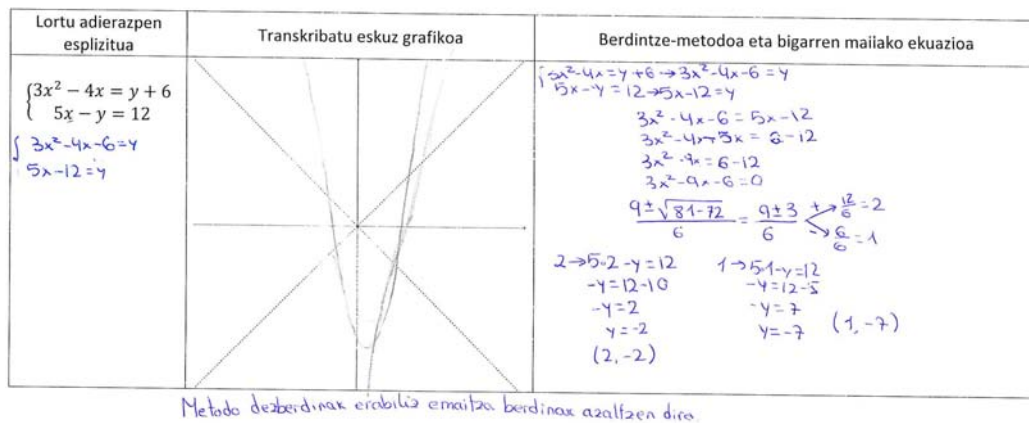 Lortu adierazpen
esplizitua
Transkribatu eskuz grafikoa
Berdintze-metodoa eta bigarren mailako ekuazioa
{3x² − 4x = y + 6
5x − y = 12
{ 3x²-4x-6=y
5x-12=y
{3x²-4x=y+6→3x²-4x-6=y
5x-y=12→5x-12=y
3x²-4x-6=5x-12
3x²-4x-5x=6-12
3x²-9x=6-12
3x²-9x-6=0
9±√81-72 / 6 = 9±3 / 6 + → 12/6=2
- → 6/6=1
2→5·2-y=12
-y=12-10
-y=2
y=-2
(2,-2)
1→5·1-y=12
-y=12-5
-y=7
y=-7 (1,-7)
Metodo dezberdinak erabiliz emaitza berdinak azaltzen dira.